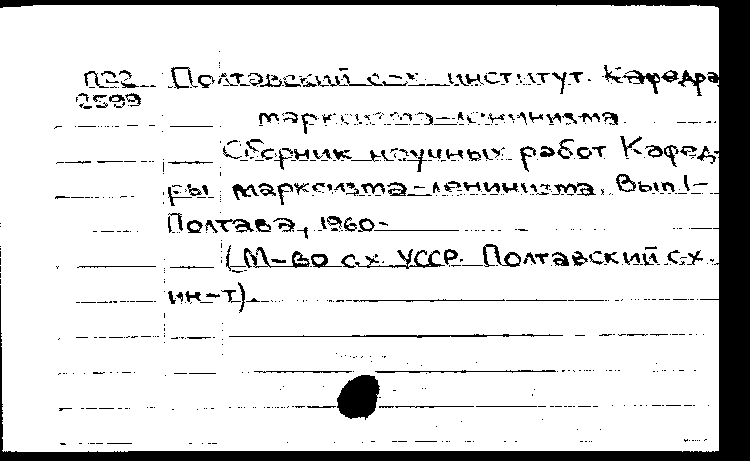 П22 Полтавский с.-х. институт. Кафедра
2599
марксизма-ленинизма.
Сборник научных работ Кафед-
ры марксизма-ленинизма. Вып 1-
Полтава, 1960-
(М-во с.х. УССР. Полтавский с.х.
ин-т).